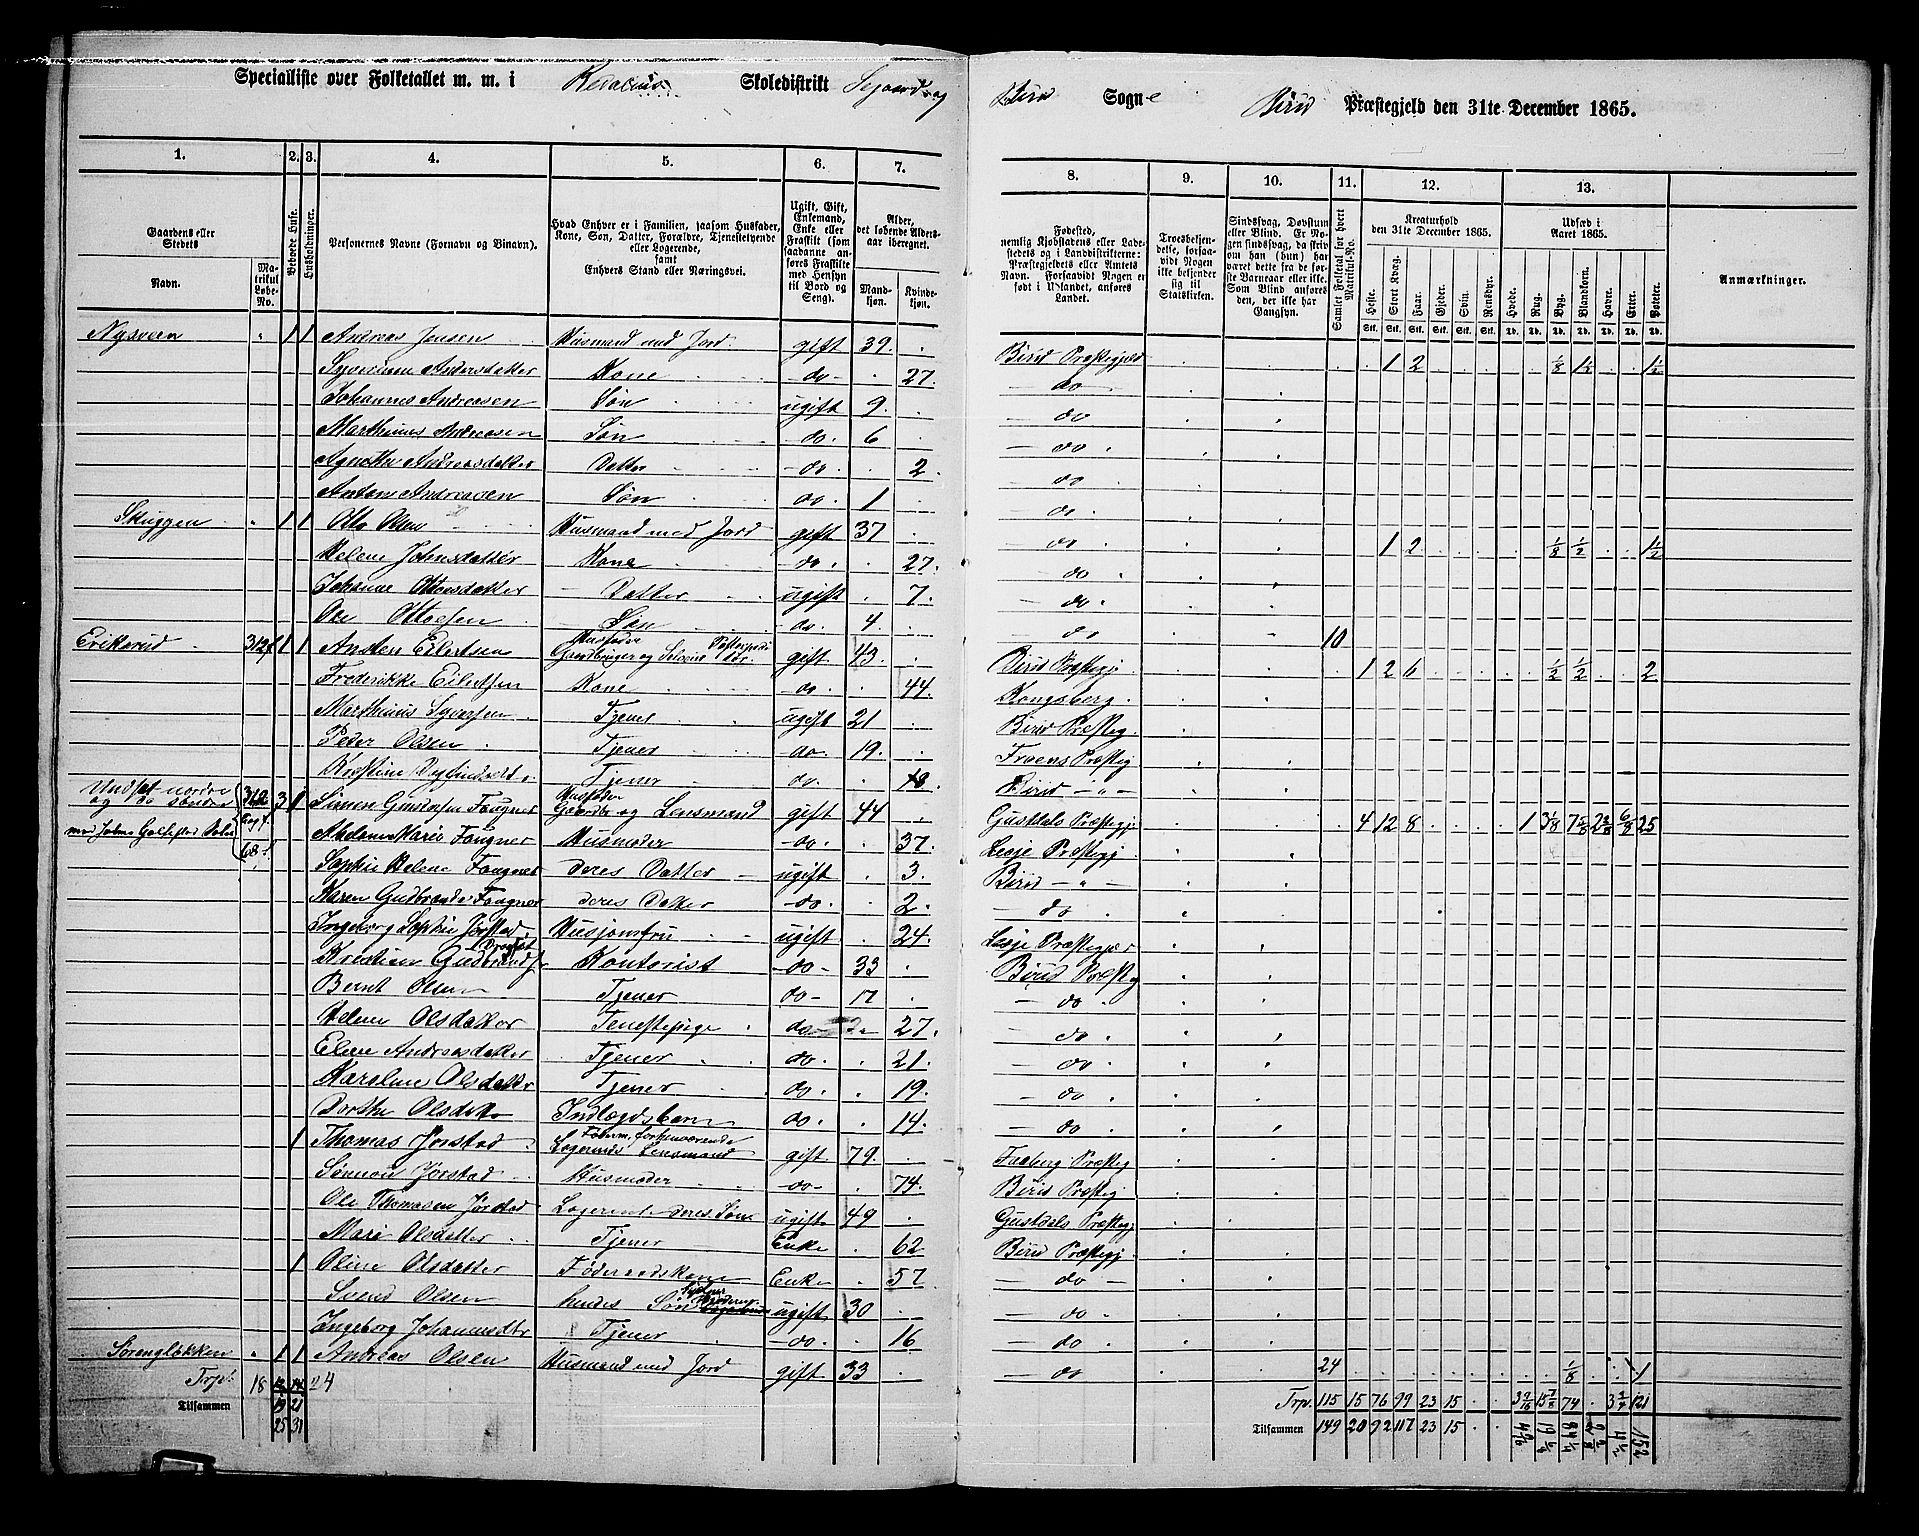 Specialliste over Folketallet m. m. i Skoledistrikt Segaard og
Birid Sogne Birid Præstegjeld den 31te December 1865.
1. 2. 3. 4. 5. 6. 7.
8. 9. 10. 11. 12. 13.
Gaardens eller Stedets Navn. Matrikul Løbe-No. Beboede Huse. Husholdninger.
Personernes Navne (Fornavn og Binavn).
Hvad Enhver er i Familien, saasom Husfader, Kone, Søn, Datter, Forældre, Tjenestetyende eller Logerende, samt Enhvers Stand eller Næringsvei.
Ugift, Gift, Enkemand, Enke eller Fraskilt (som saadanne anføres Fraskilte med Hensyn til Bord og Seng).
Alder, det løbende Aldersaar iberegnet. Mandkjøn. Kvindekjøn.
Fødested, nemlig Kjøbstadens eller Ladestedets og i Landdistrikterne: Præstegjeldets eller Amtets Navn. Forsaavidt Nogen er født i Udlandet, anføres Landet.
Troesbekjendelse, forsaavidt Nogen ikke bekjender sig til Statskirken.
Sindssvag, Døvstum eller Blind. Er Nogen sindssvag, da skriv om han (hun) har været dette fra de første Barneaar eller ikke. Som Blind anføres den, der ikke har Gangsyn.
Samlet Folketal for hvert Matrikul-No.
Kreaturhold den 31te December 1865. Heste. Stort Kvæg. Faar. Gjeder. Svin. Rensdyr.
Udsæd i Aaret 1865. Hvede. Rug. Byg. Blandkorn. Havre. Erter. Poteter.
Anmærkninger.
Nysveen " 1 1 Andreas Jensen Husmand med Jord gift 39. Birid Præstegjeld 1 2 1/8
Andersdatter Kone do 27. do
Johannes Andreasen Søn ugift 9. do
Marthinus Andreasen Søn do. 6 do
Agnethe Andreasdatter Datter do. 2 do
Anton Andreasen Søn do. 1 do
Skuggen " 1 1 Otto Olsen Husmand med Jord gift 37 do 1 2 1/8 1/2 1 1/2
Helene Johnsdatter Kone do. 27. do
Johanne Ottosdatter Datter ugift 7. do
Ottosen Søn do. 4. do 10
Erikerud 312 1 1 Eilertsen Husfader Gaardbruger og gift 43. Birid Præstegj. 1 2 6 1/2 1/2 2
Frederikke Eilertsen Kone do. 44. Kongsberg
Marthinus Syversen Tjener ugift 21 Birid Præsteg
Peder Olsen Tjener do. 19. Froens Præsteg
Tjener do. Birid "
nordre og do søndre 312 3 1 Simen Fougner Husfader Gaardbr. og Lensmand gift 44 Præstegj. 4 12 8 1 3/8 25
68. Marie Fougner Husmoder do. 37. Lesje Præstegj
Sophie Helene Fougner deres Datter ugift 3. Birid "
Karen Gudbrande Fougner deres Datter do. 2. do
Ingeborg Sophie Jørstad Husjomfru ugift 24. Lesje Præstegj
Kristian Gudbrands Kontorist do 33 Birid Præsteg
Bernt Olsen Tjener do 17 do
Helene Olsdatter Tenestepige do 27. do
Eline Andreasdatter Tjener do. 21. do
Karoline Olsdatter Tjener do. 19. do
Dorthe Olsdatter Indlægdsbarn do. 14. do
1 Thomas Jørstad forhenværende Lensmand gift 79. Faaberg Præsteg
Jørstad Husmoder do 74. Birid Præsteg
Ole Thomasen Jørstad Logerende deres Søn ugift 49 Præstegj
Mari Olsdatter Tjener Enke 62 Birid Præstegj.
1 Oline Olsdatter Føderaadskone Enke 57 do
Svend Olsen hendes Søn ugift 30 do
Ingeborg Johannesdtr Tjener do 16 do
" 1 1 Andreas Olsen Husmand med Jord gift 33 do 24 1/8 1
Trp. 18 24 Trp. 115 15 76 99 23 15 74 121
Tilsammen 19 21 Tilsammen 149 20 92 117 23 15 152
25 31